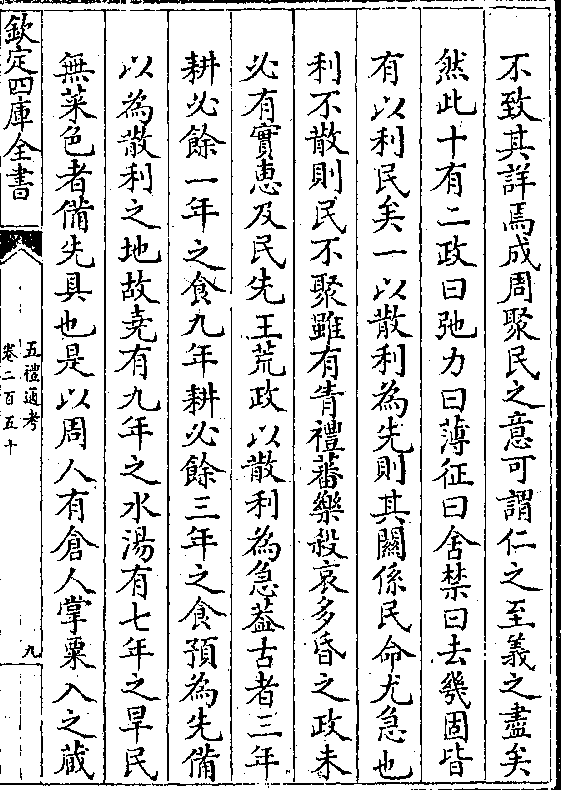 不致其詳焉成周聚民之意可謂仁之至義之盡矣
然此十有二政曰弛力曰薄征曰舍禁曰去幾固皆
有以利民矣一以散利為先則其關係民命尤急也
利不散則民不聚雖有眚禮蕃樂殺哀多昏之政未
必有實恵及民先王荒政以散利為急葢古者三年
耕必餘一年之食九年耕必餘三年之食預為先備
以為散利之地故堯有九年之水湯有七年之旱民
無菜色者備先具也是以周人有倉人掌粟入之蔵
欽定四庫全書
五禮通考
卷二百五十
九